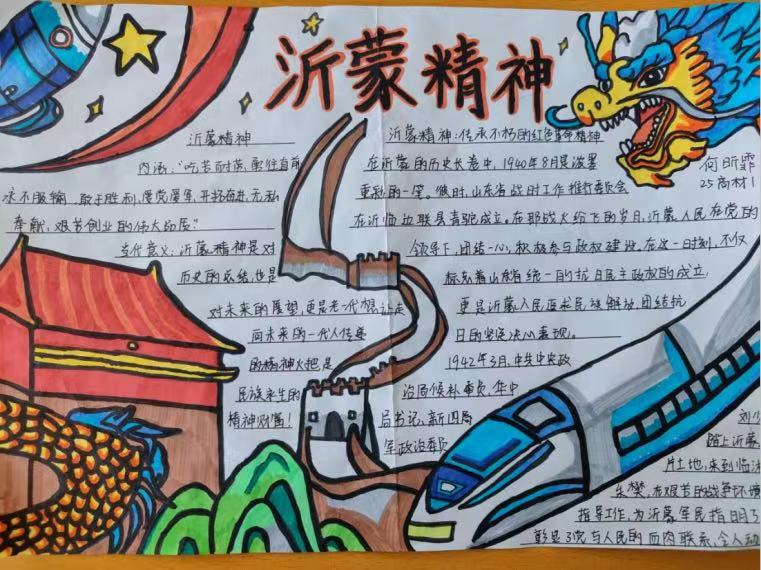 沂蒙精神
沂蒙精神
内涵:"吃苦耐劳、勇往直前
永不服输、敢于胜利,爱党爱军、开拓奋进,无私
奉献、艰苦创业的伟大品质"
当代意义:沂蒙精神是对
历史的总结,也是
对未来的展望,更是老一代想让走
向未来的一代人传递
的精神火把,是
民族永生的
精神财富!
沂蒙精神:传承不朽的红色革命精神
在沂蒙的历史长卷中,1940年8月是浓墨
重彩的一笔。彼时,山东省战时工作推行委员会
在沂临边联县青驼成立。在那战火纷飞的岁月,沂蒙人民在党的
领导下,团结一心,积极参与政权建设。在这一时刻,不仅
标志着山东省统一的抗日民主政权的成立,
更是沂蒙人民追求民族解放,团结抗
日的坚定决心表现。
1942年3月,中共中央政
治局候补委员、华中
局书记、新四局
军政治委员
刘少
踏上沂蒙
片土地,来到临沭
朱樊,在艰苦的战争环境
指导工作,为沂蒙军民指明了
彰显了党与人民的血肉联系,令人动
何昕霏
25高材1